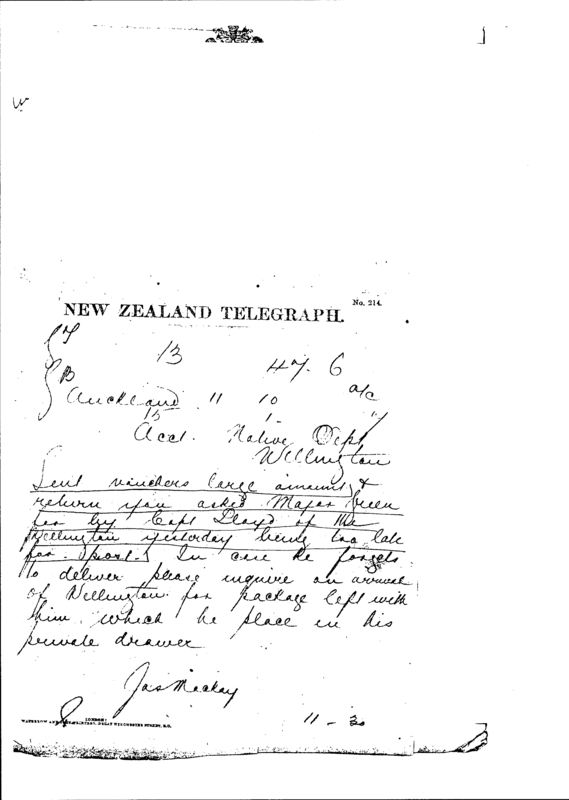 W
No. 214.
NEW ZEALAND TELEGRAPH.
13 47. 6
B
Auckland 11 10 a/c
15 1
Acct. Native Dept
Wellington
Sent vouchers large amount &
return you asked Major Green
for by Capt Lloyd of the
Wellington yesterday being too late
for post. In case he forgets
to deliver please inquire on arrival
of Wellington for package left with
him which he place in his
private drawer
Jas Mackay
LONDON:
WATERLOW AND GREAT WINCHESTER STREET, E.C.
11 - 30